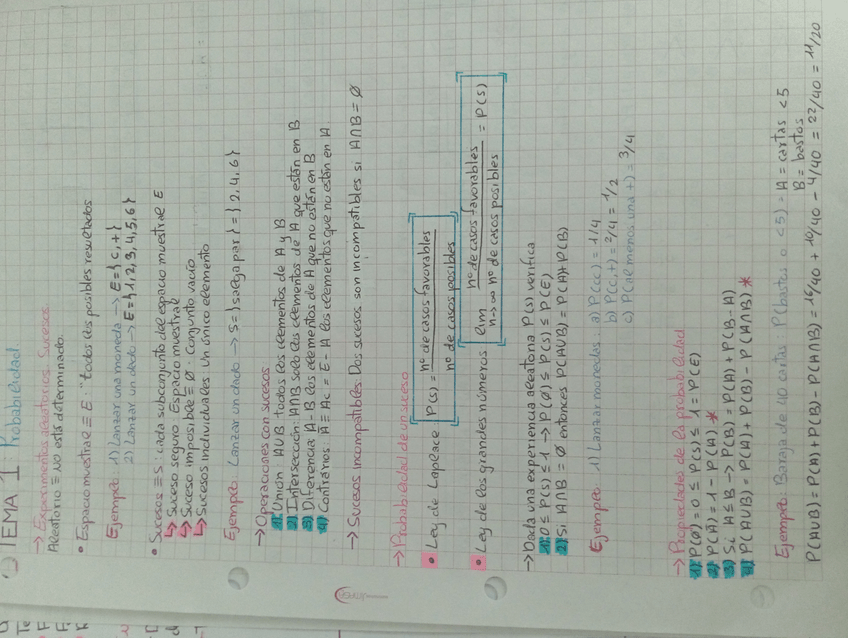 TEMA 1: Probabilidad
→ Experimentos aleatorios. Sucesos
Aleatorio ≡ No está determinado.
• Espacio muestral ≡ E : "todos los posibles resultados
Ejemplo: 1) Lanzar una moneda → E={c,+}
2) Lanzar un dado → E={1,2,3,4,5,6}
• Sucesos ≡ S : cada subconjunto del espacio muestral E
↳ Suceso seguro Espacio muestral
↳ Suceso imposible ≡ Ø Conjunto vacío
↳ Sucesos individuales Un único elemento
Ejemplo: Lanzar un dado → S={salga par} = {2,4,6}
→ Operaciones con sucesos
1) Unión: A∪B todos los elementos de A y B
2) Intersección: A∩B solo los elementos de A que están en B
3) Diferencia: A-B los elementos de A que no están en B
4) Contrarios: Ā ≡ Ac = E - A los elementos que no están en A.
→ Sucesos Incompatibles: Dos sucesos son incompatibles si A∩B = Ø
→ Probabilidad de un suceso
• Ley de Laplace [P(S) = nº de casos favorables / nº de casos posibles]
• Ley de los grandes números [lim n→∞ nº de casos favorables / nº de casos posibles = P(S)]
→ Dada una experiencia aleatoria P(S) verifica
1) 0 ≤ P(S) ≤ 1 → P(Ø) ≤ P(S) ≤ P(E)
2) Si A∩B = Ø entonces P(A∪B) = P(A)+P(B)
Ejemplo: 1) Lanzar monedas a) P(cc) = 1/4
b) P(c,+) = 2/4 = 1/2
c) P(al menos una +) = 3/4
→ Propiedades de la probabilidad
1) P(Ø) = 0 ≤ P(S) ≤ 1 = P(E)
2) P(Ā) = 1 - P(A) *
3) Si A ≤ B → P(B) = P(A) + P(B-A)
4) P(A∪B) = P(A) + P(B) - P(A∩B) *
Ejemplo: Baraja de 40 cartas: P(bastos o <5) = A = cartas <5
B = bastos
P(A∪B) = P(A) + P(B) - P(A∩B) = 16/40 + 10/40 - 4/40 = 22/40 = 11/20